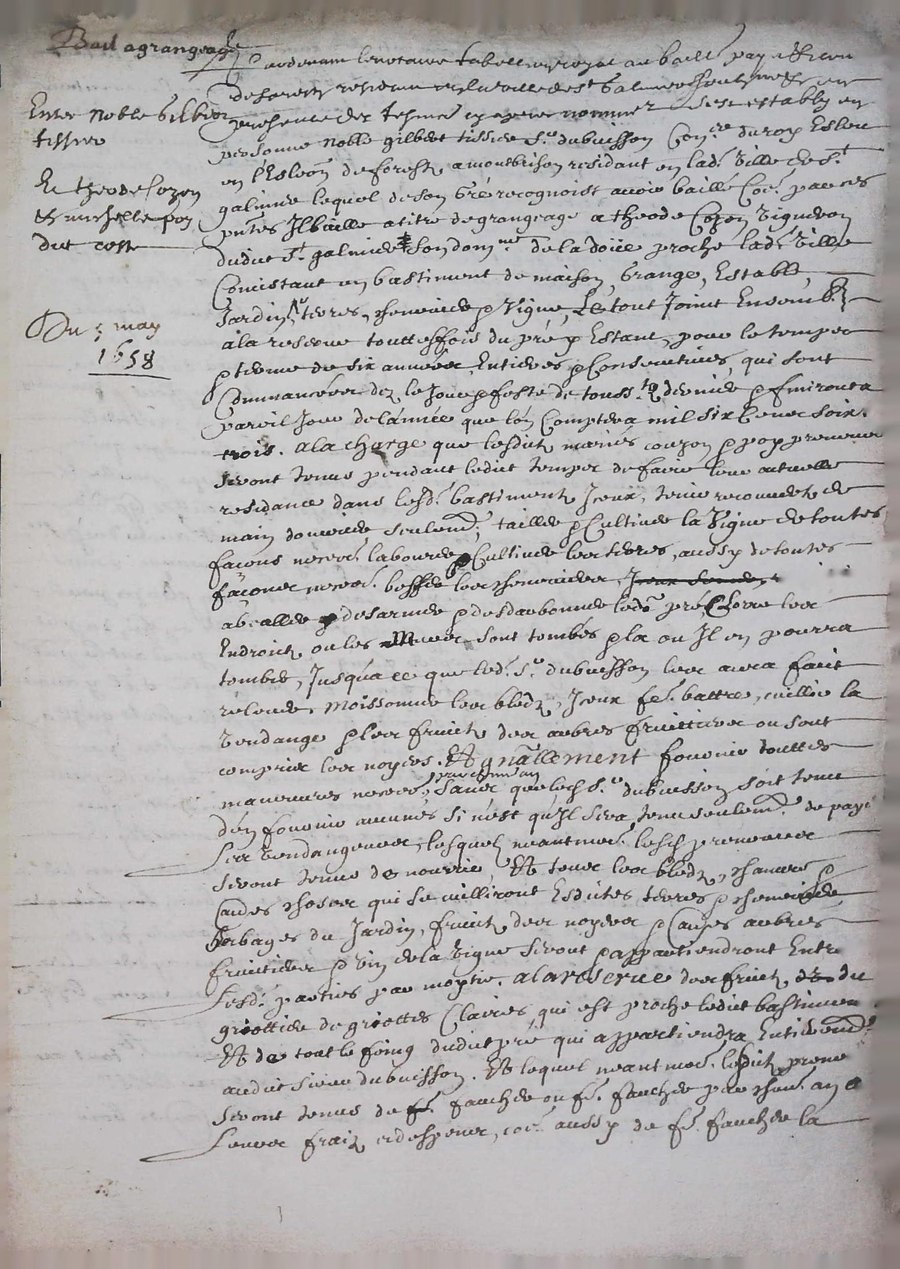 Bail a grangeage
Entre noble Gilbert
tissier
Et theode Cozon
Et michelle poy
dud coste
Du 5 may
1658
Pardevant le notaire tabellion royal au bailli. pays &
de forestz residant en la ville de st Galmier soubzné en
presence des tesmoins cy apres nommez s'est estably en
personne noble gilbert tissier sr. dubuisson Conr. du roy Esleu
en l'Eslôn de forestz a montbrison residant en lad. ville de st
galmier lequel de son gré recognoist avoir baillé Coe. par ces
pntes Il baille a titre de grangeage a theode Cozon vigneron
dudit st. galmier son domne de la doüe proche lad. ville
Consistant en bastiment de maison, Grange, Estable,
Jardin, terres, cheneviere & vigne, Le tout Joint Ensemble
a la reserve touttesfois du pré y Estant, pour le temps
& terme de six années Entieres & Consecutives, qui sont
Commancées dez le Jour & feste de touss.ts derniere & finiront a
pareil Jour de l'année que lon Comptera mil six Cent soix.
trois. a la charge que lesdit mariés couzon & poy preneurs
seront tenus pendant ledit temps de faire leur actuelle
residance dans lesd. bastimentz Iceux, tenir recouvertz de
main douvrier seulemt. tailler & Cultiver la vigne de toutes
façons necess. labourer & Cultiver les terres, aussy de toutes
façones necess. bescher les chenevieres,
aberaller & desarmer & desdarbonner led. pré, Clorre les
Endroictz ou les murs sont tombés & la ou Il en pourra
tomber, Jusqua ce que led. sr. dubuisson les aura faict
relever, moissonner les bledz, Iceux fe. battre, cuillir la
vendange & les fruictz des arbres fruittiers ou sont
comprises les noyers. Et gnâllement fournir touttes
manœuvres necess., sans que led sr. dubuisson soit tenu
d'en fournir aucunes si n'est qu'Il sera tenu seulemt. de payer
les vendangeurs, lesquelz neantmoe. lesd preneurs
seront tenus de nourrir, Et tous les bledz, chanvres &
autres choses qui se cuilliront Esdites terres & chenevieres
herbages du Jardin, fruictz des noyers & autres arbres
fruittiers & vin de la vigne seront & appartiendront Entre
lesd. parties par moytie. a la reserve des fruictz du
griottier de griottes Claires qui est proche ledit bastiment
Et de tout le foing dudit pré qui appartiendra Entieremt.
audit sieur dubuisson. Et lequel neantmoe. lesdit prene
seront tenus de faucher ou fe. faucher par chun. an a
leurs fraiz et despens, coe. aussy de fe. faucher la